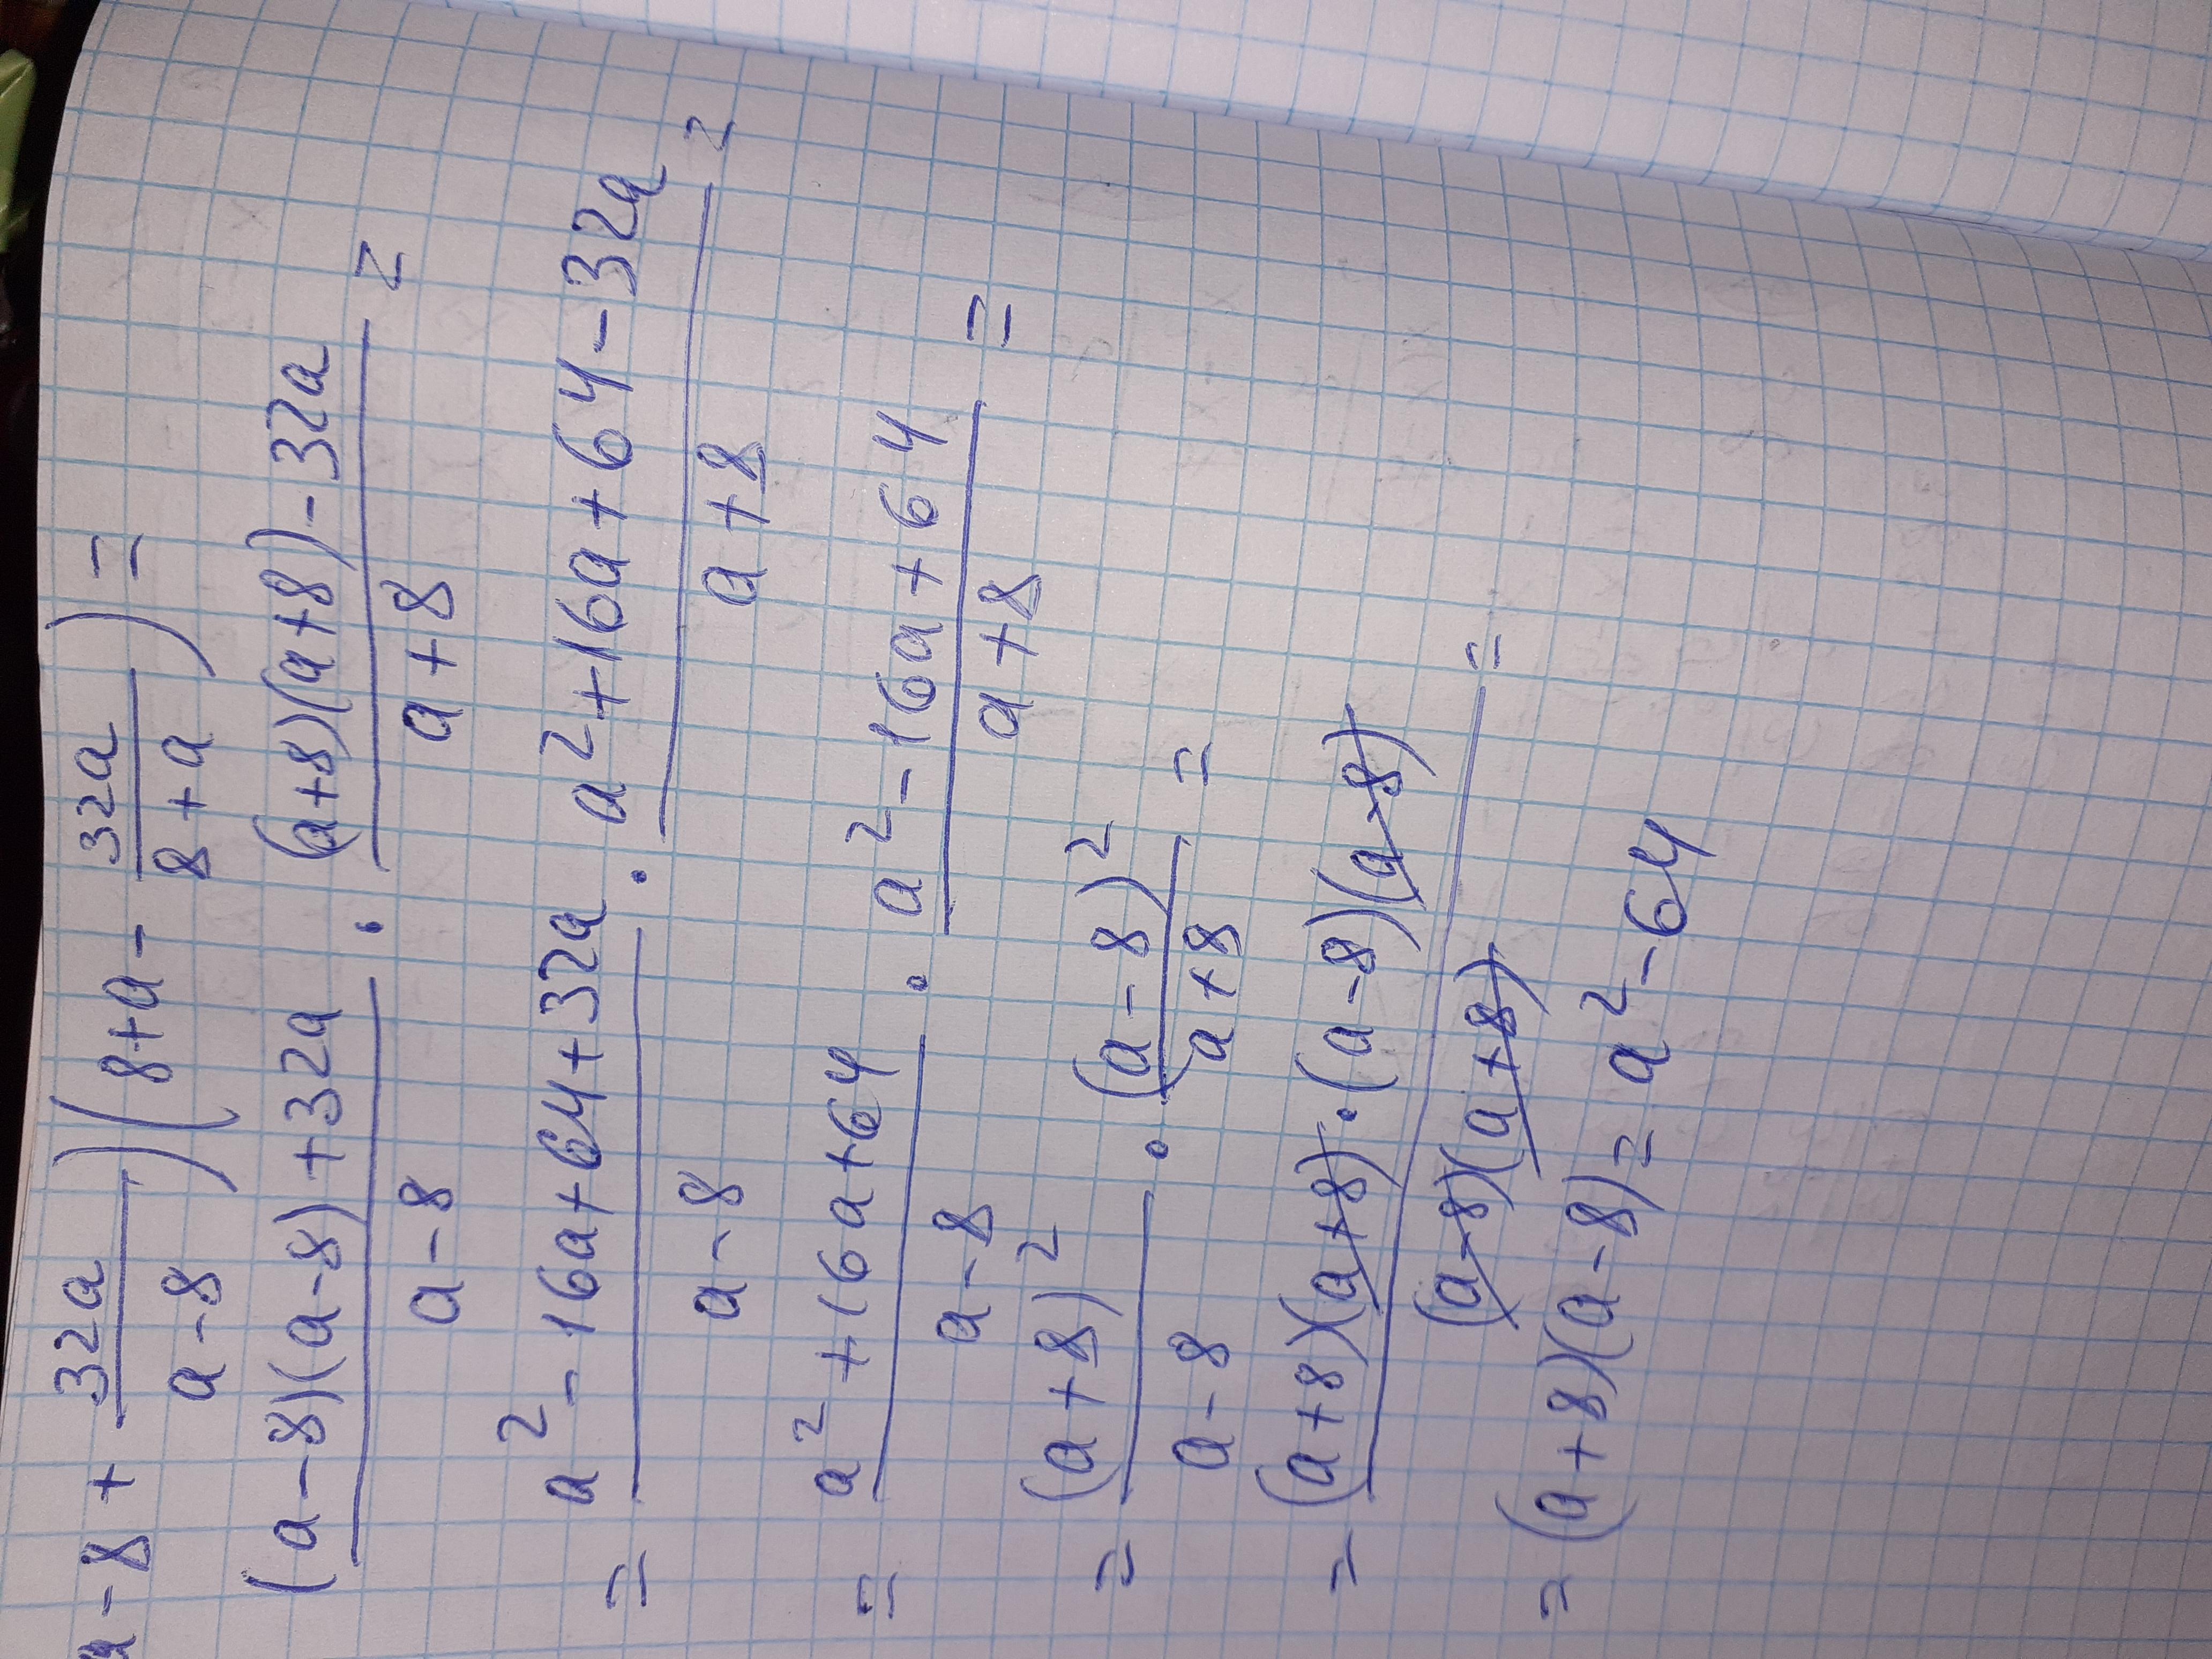 a - 8 + 32a/(a - 8) ) ( 8 + a - 32a/(8 + a) ) =
((a - 8)(a - 8) + 32a)/(a - 8) · ((a + 8)(a + 8) - 32a)/(a + 8) =
= (a² - 16a + 64 + 32a)/(a - 8) · (a² + 16a + 64 - 32a)/(a + 8) =
= (a² + 16a + 64)/(a - 8) · (a² - 16a + 64)/(a + 8) =
= (a + 8)²/(a - 8) · (a - 8)²/(a + 8) =
= ((a + 8)(a + 8) · (a - 8)(a - 8))/((a - 8)(a + 8)) =
= (a + 8)(a - 8) = a² - 64